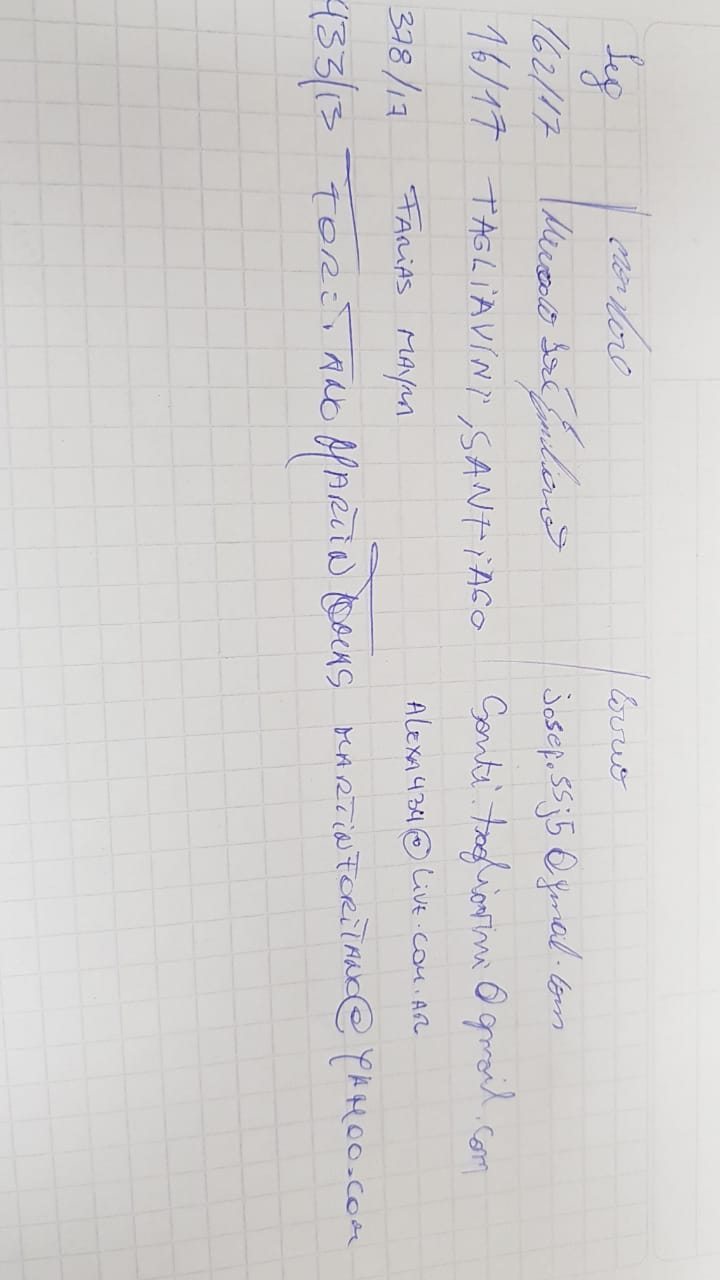 Leg | nombre | correo
162/17 | Mercado José Emiliano josep.ssj5@gmail.com
16/17 TAGLIAVINI, SANTIAGO Santi.tagliavini@gmail.com
378/17 FARIAS MAYRA ALEXA434@LIVE.COM.AR
433/13 FORiTANO MARTIN MARTINFORITANO@YAHOO.COM